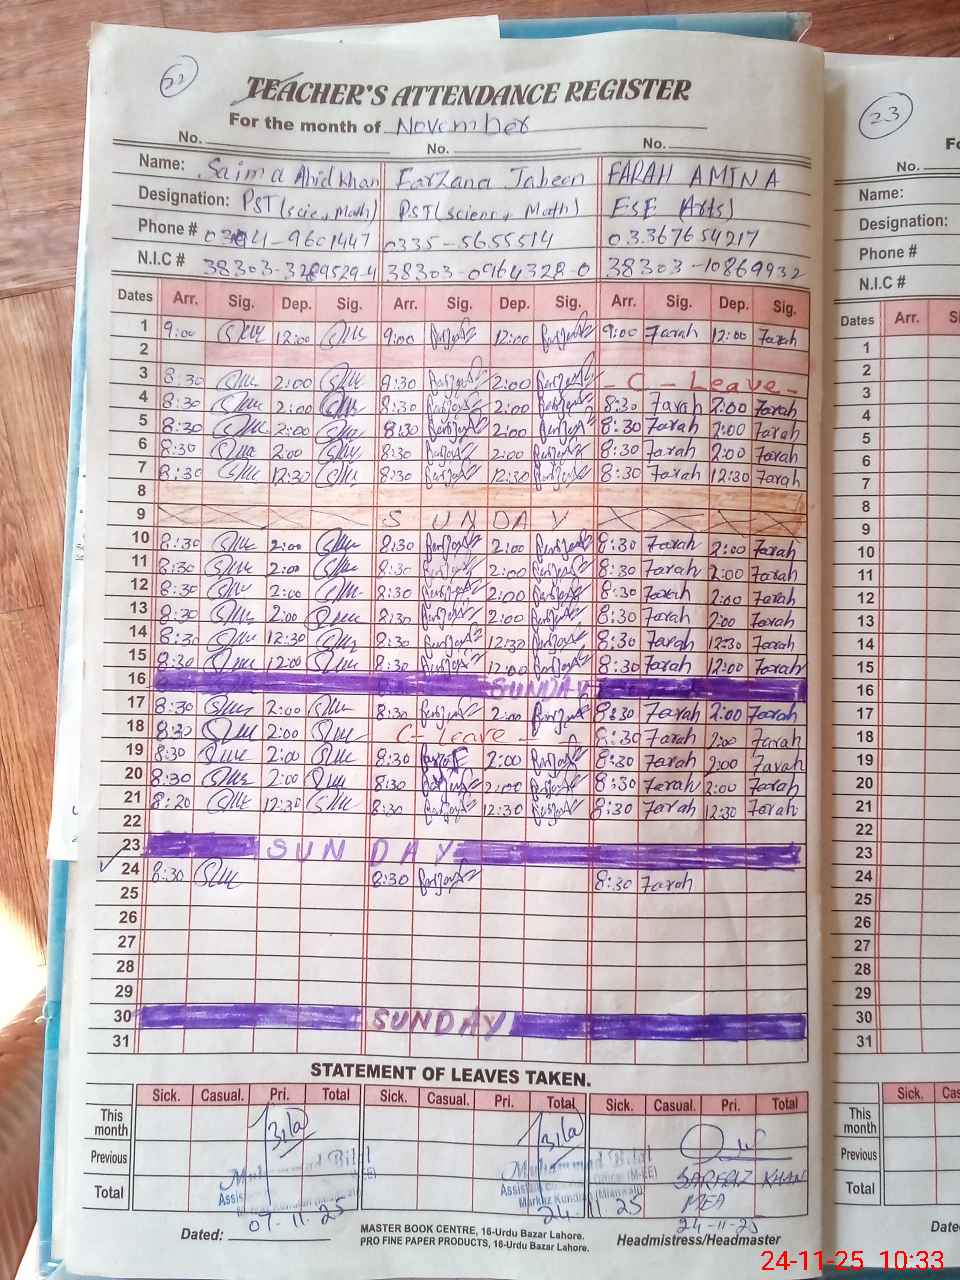 22
TEACHER'S ATTENDANCE REGISTER
For the month of November
No. No. No.
Name: Saima Ahid Khan Farzana Jabeen FARAH AMINA
Designation: PST (scie, Math) PST (scienc, Math) ESE (Arts)
Phone # 0341-9601447 0335-5655514 03367654217
N.I.C # 38303-3289529-4 38303-0964328-0 38303-10869932
Dates Arr. Sig. Dep. Sig. Arr. Sig. Dep. Sig. Arr. Sig. Dep. Sig.
1 9:00 12:00 9:00 12:00 9:00 Farah 12:00 Farah
2
3 8:30 2:00 8:30 2:00 - C - Leave -
4 8:30 2:00 8:30 2:00 8:30 Farah 2:00 Farah
5 8:30 2:00 8:30 2:00 8:30 Farah 2:00 Farah
6 8:30 2:00 8:30 2:00 8:30 Farah 2:00 Farah
7 8:30 12:30 8:30 12:30 8:30 Farah 12:30 Farah
8
9 SUNDAY
10 8:30 2:00 8:30 2:00 8:30 Farah 2:00 Farah
11 8:30 2:00 8:30 2:00 8:30 Farah 2:00 Farah
12 8:30 2:00 8:30 2:00 8:30 Farah 2:00 Farah
13 8:30 2:00 8:30 2:00 8:30 Farah 2:00 Farah
14 8:30 12:30 8:30 12:30 8:30 Farah 12:30 Farah
15 8:30 12:00 8:30 12:00 8:30 Farah 12:00 Farah
16 SUNDAY
17 8:30 2:00 8:30 2:00 8:30 Farah 2:00 Farah
18 8:30 2:00 C- Leave - 8:30 Farah 2:00 Farah
19 8:30 2:00 8:30 2:00 8:30 Farah 2:00 Farah
20 8:30 2:00 8:30 2:00 8:30 Farah 2:00 Farah
21 8:20 12:30 8:30 12:30 8:30 Farah 12:30 Farah
22
23 SUNDAY
24 8:30 8:30 8:30 Farah
25
26
27
28
29
30 SUNDAY
31
STATEMENT OF LEAVES TAKEN.
Sick. Casual. Pri. Total Sick. Casual. Pri. Total Sick. Casual. Pri. Total
This month
Previous
Total
Bila Bila
Muhammad Bilal Muhammad Bilal
SARFRAZ KHAN
MEA
07-11-25 24-11 25 24-11-25
Dated:
MASTER BOOK CENTRE, 16-Urdu Bazar Lahore.
PRO FINE PAPER PRODUCTS, 16-Urdu Bazar Lahore.
Headmistress/Headmaster
23
No.
Name:
Designation:
Phone #
N.I.C #
Dates Arr.
1
2
3
4
5
6
7
8
9
10
11
12
13
14
15
16
17
18
19
20
21
22
23
24
25
26
27
28
29
30
31
Sick.
This month
Previous
Total
24-11-25 10:33